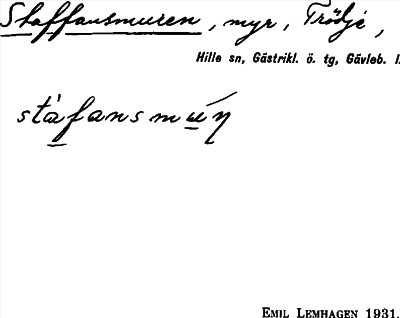 Staffansmuren, myr, Trödje,
Hille sn, Gästrikl. ö. tg, Gävleb. l.
stáfansmu̲ŋ
EMIL LEMHAGEN 1931.